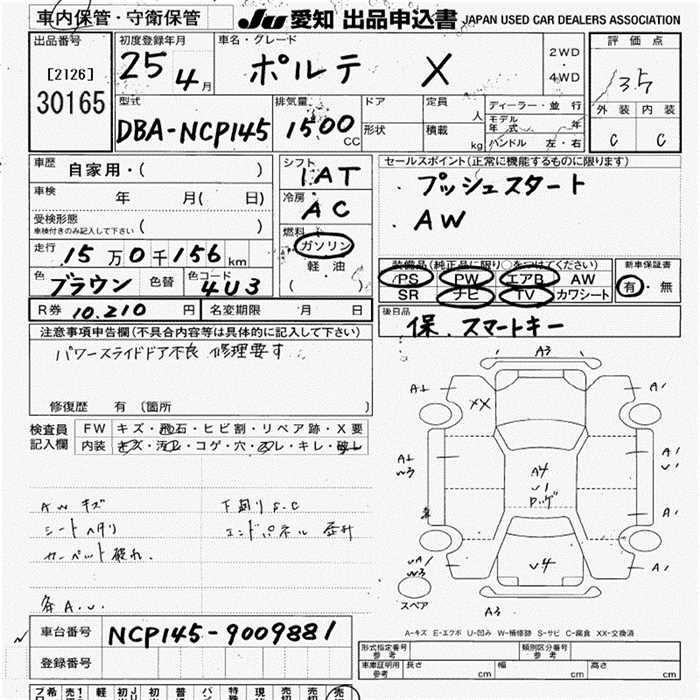 車内保管・守衛保管
JU 愛知 出品申込書 JAPAN USED CAR DEALERS ASSOCIATION
出品番号
[2126]
30165
初度登録年月
25 4月
車名・グレード
ポルテ X
2WD
・
4WD
評価点
3.5
外装 内装
C C
型式
DBA-NCP145
排気量
1500 CC
ドア
形状
定員 人
積載 kg
ディーラー・並行
モデル年式 年
ハンドル 左・右
車歴 自家用・( )
車検 年 月( 日)
受検形態
車検付きのみ記入して下さい ( )
走行 15万0千156km
色 ブラウン 色替 色コード 4U3
シフト
IAT
冷房
AC
燃料
ガソリン
軽油
( )
セールスポイント(正常に機能するものに限ります)
・プッシュスタート
・AW
装備品(純正品に限り○をつけてください)
PS PW エアB AW
SR ナビ TV カワシート
新車保証書
有・無
R券 10.210 円 名変期限 月 日
後日品
保、スマートキー
注意事項申告欄(不具合内容等は具体的に記入して下さい)
パワースライドドア不良 修理要す
修復歴 有 〔箇所 〕
検査員
記入欄
FW キズ・飛石・ヒビ割・リペア跡・X要
内装 キズ・汚レ・コゲ・穴・スレ・キレ・破レ
AWキズ
シートヘタリ
カーペット破れ
下廻りS.C
エンドパネル歪み
各A.U.
A3
A1
XX
A1
A1
W3
A4
U1
A1
U1
A1
U4
W3
A1
スペア
A3
A-キズ E-エクボ U-凹み W-補修跡 S-サビ C-腐食 XX-交換済
車台番号 NCP145-9009881
登録番号
形式指定番号
参考
類別区分番号
参考
車庫証明用
参考
長さ cm 幅 cm 高さ cm